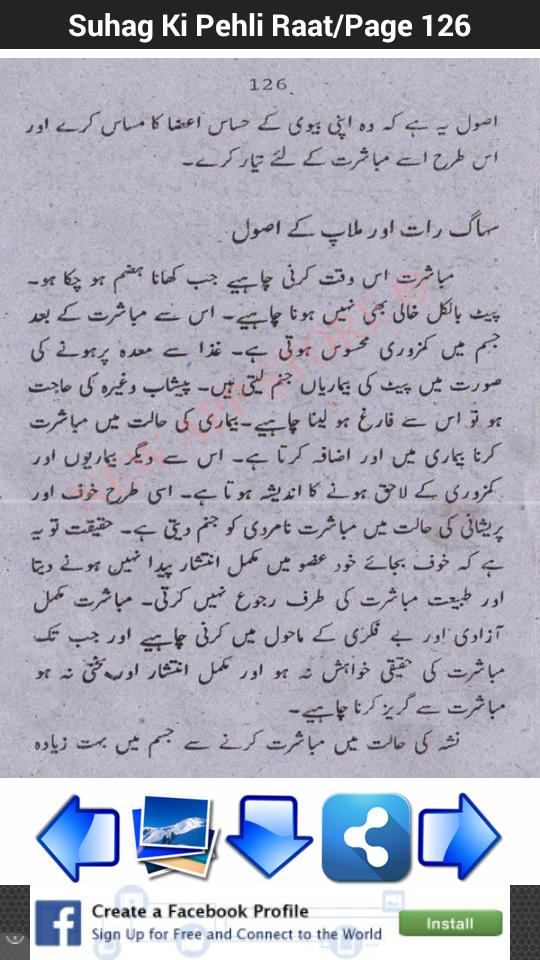 Suhag Ki Pehli Raat/Page 126
126
اصول یہ ہے کہ وہ اپنی بیوی کے حساس اعضا کا مساس کرے اور
اس طرح اسے مباشرت کے لئے تیار کرے۔
سہاگ رات اور ملاپ کے اصول
مباشرت اس وقت کرنی چاہیے جب کھانا ہضم ہو چکا ہو۔
پیٹ بالکل خالی بھی نہیں ہونا چاہیے۔ اس سے مباشرت کے بعد
جسم میں کمزوری محسوس ہوتی ہے۔ غذا سے معدہ پر ہونے کی
صورت میں پیٹ کی بیماریاں جنم لیتی ہیں۔ پیشاب وغیرہ کی حاجت
ہو تو اس سے فارغ ہو لینا چاہیے۔ بیماری کی حالت میں مباشرت
کرنا بیماری میں اور اضافہ کرتا ہے۔ اس سے دیگر بیماریوں اور
کمزوری کے لاحق ہونے کا اندیشہ ہوتا ہے۔ اسی طرح خوف اور
پریشانی کی حالت میں مباشرت نامردی کو جنم دیتی ہے۔ حقیقت تو یہ
ہے کہ خوف بجائے خود عضو میں مکمل انتشار پیدا نہیں ہونے دیتا
اور طبیعت مباشرت کی طرف رجوع نہیں کرتی۔ مباشرت مکمل
آزادی اور بے فکری کے ماحول میں کرنی چاہیے اور جب تک
مباشرت کی حقیقی خواہش نہ ہو اور مکمل انتشار اور سختی نہ ہو
مباشرت سے گریز کرنا چاہیے۔
نشہ کی حالت میں مباشرت کرنے سے جسم میں بہت زیادہ
Create a Facebook Profile
Sign Up for Free and Connect to the World
Install